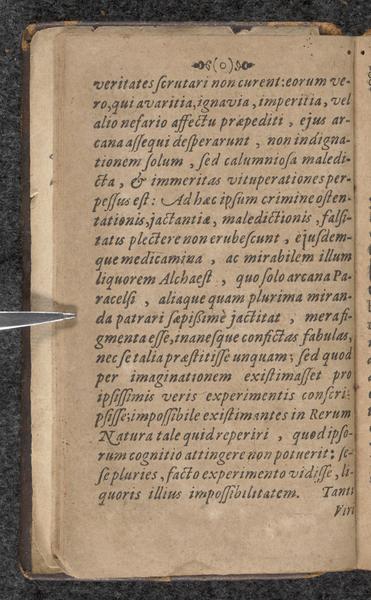 (o)
veritates ſcrutari non curent: eorum ve-
ro, qui avaritia, ignavia, imperitia, vel
alio nefario affectu præpediti, ejus ar-
cana aſſequi deſperarunt, non indigna-
tionem ſolum, ſed calumnioſa maledi-
cta, & immeritas vituperationes per-
peſſus eſt: Ad hæc ipſum crimine oſten-
tationis, jactantiæ, maledictionis, falſi-
tatis plectere non erubeſcunt, ejuſdem-
que medicamina, ac mirabilem illum
liquorem Alchaeſt, quo ſolo arcana Pa-
racelſi, aliaque quam plurima miran-
da patrari ſæpißimè jactitat, mera fi-
gmenta eſſe, inanesque confictas fabulas,
nec ſe talia præſtitiſſe unquam; ſed quod
per imaginationem exiſtimaſſet pro
ipſiſſimis veris experimentis conſcri-
pſiſſe; impoſſibile exiſtimantes in Rerum
Natura tale quid reperiri, quod ipſo-
rum cognitio attingere non potuerit: ſe-
ſe pluries, facto experimento vidiſſe, li-
quoris illius impoſſibilitatem. Tanti
Viri